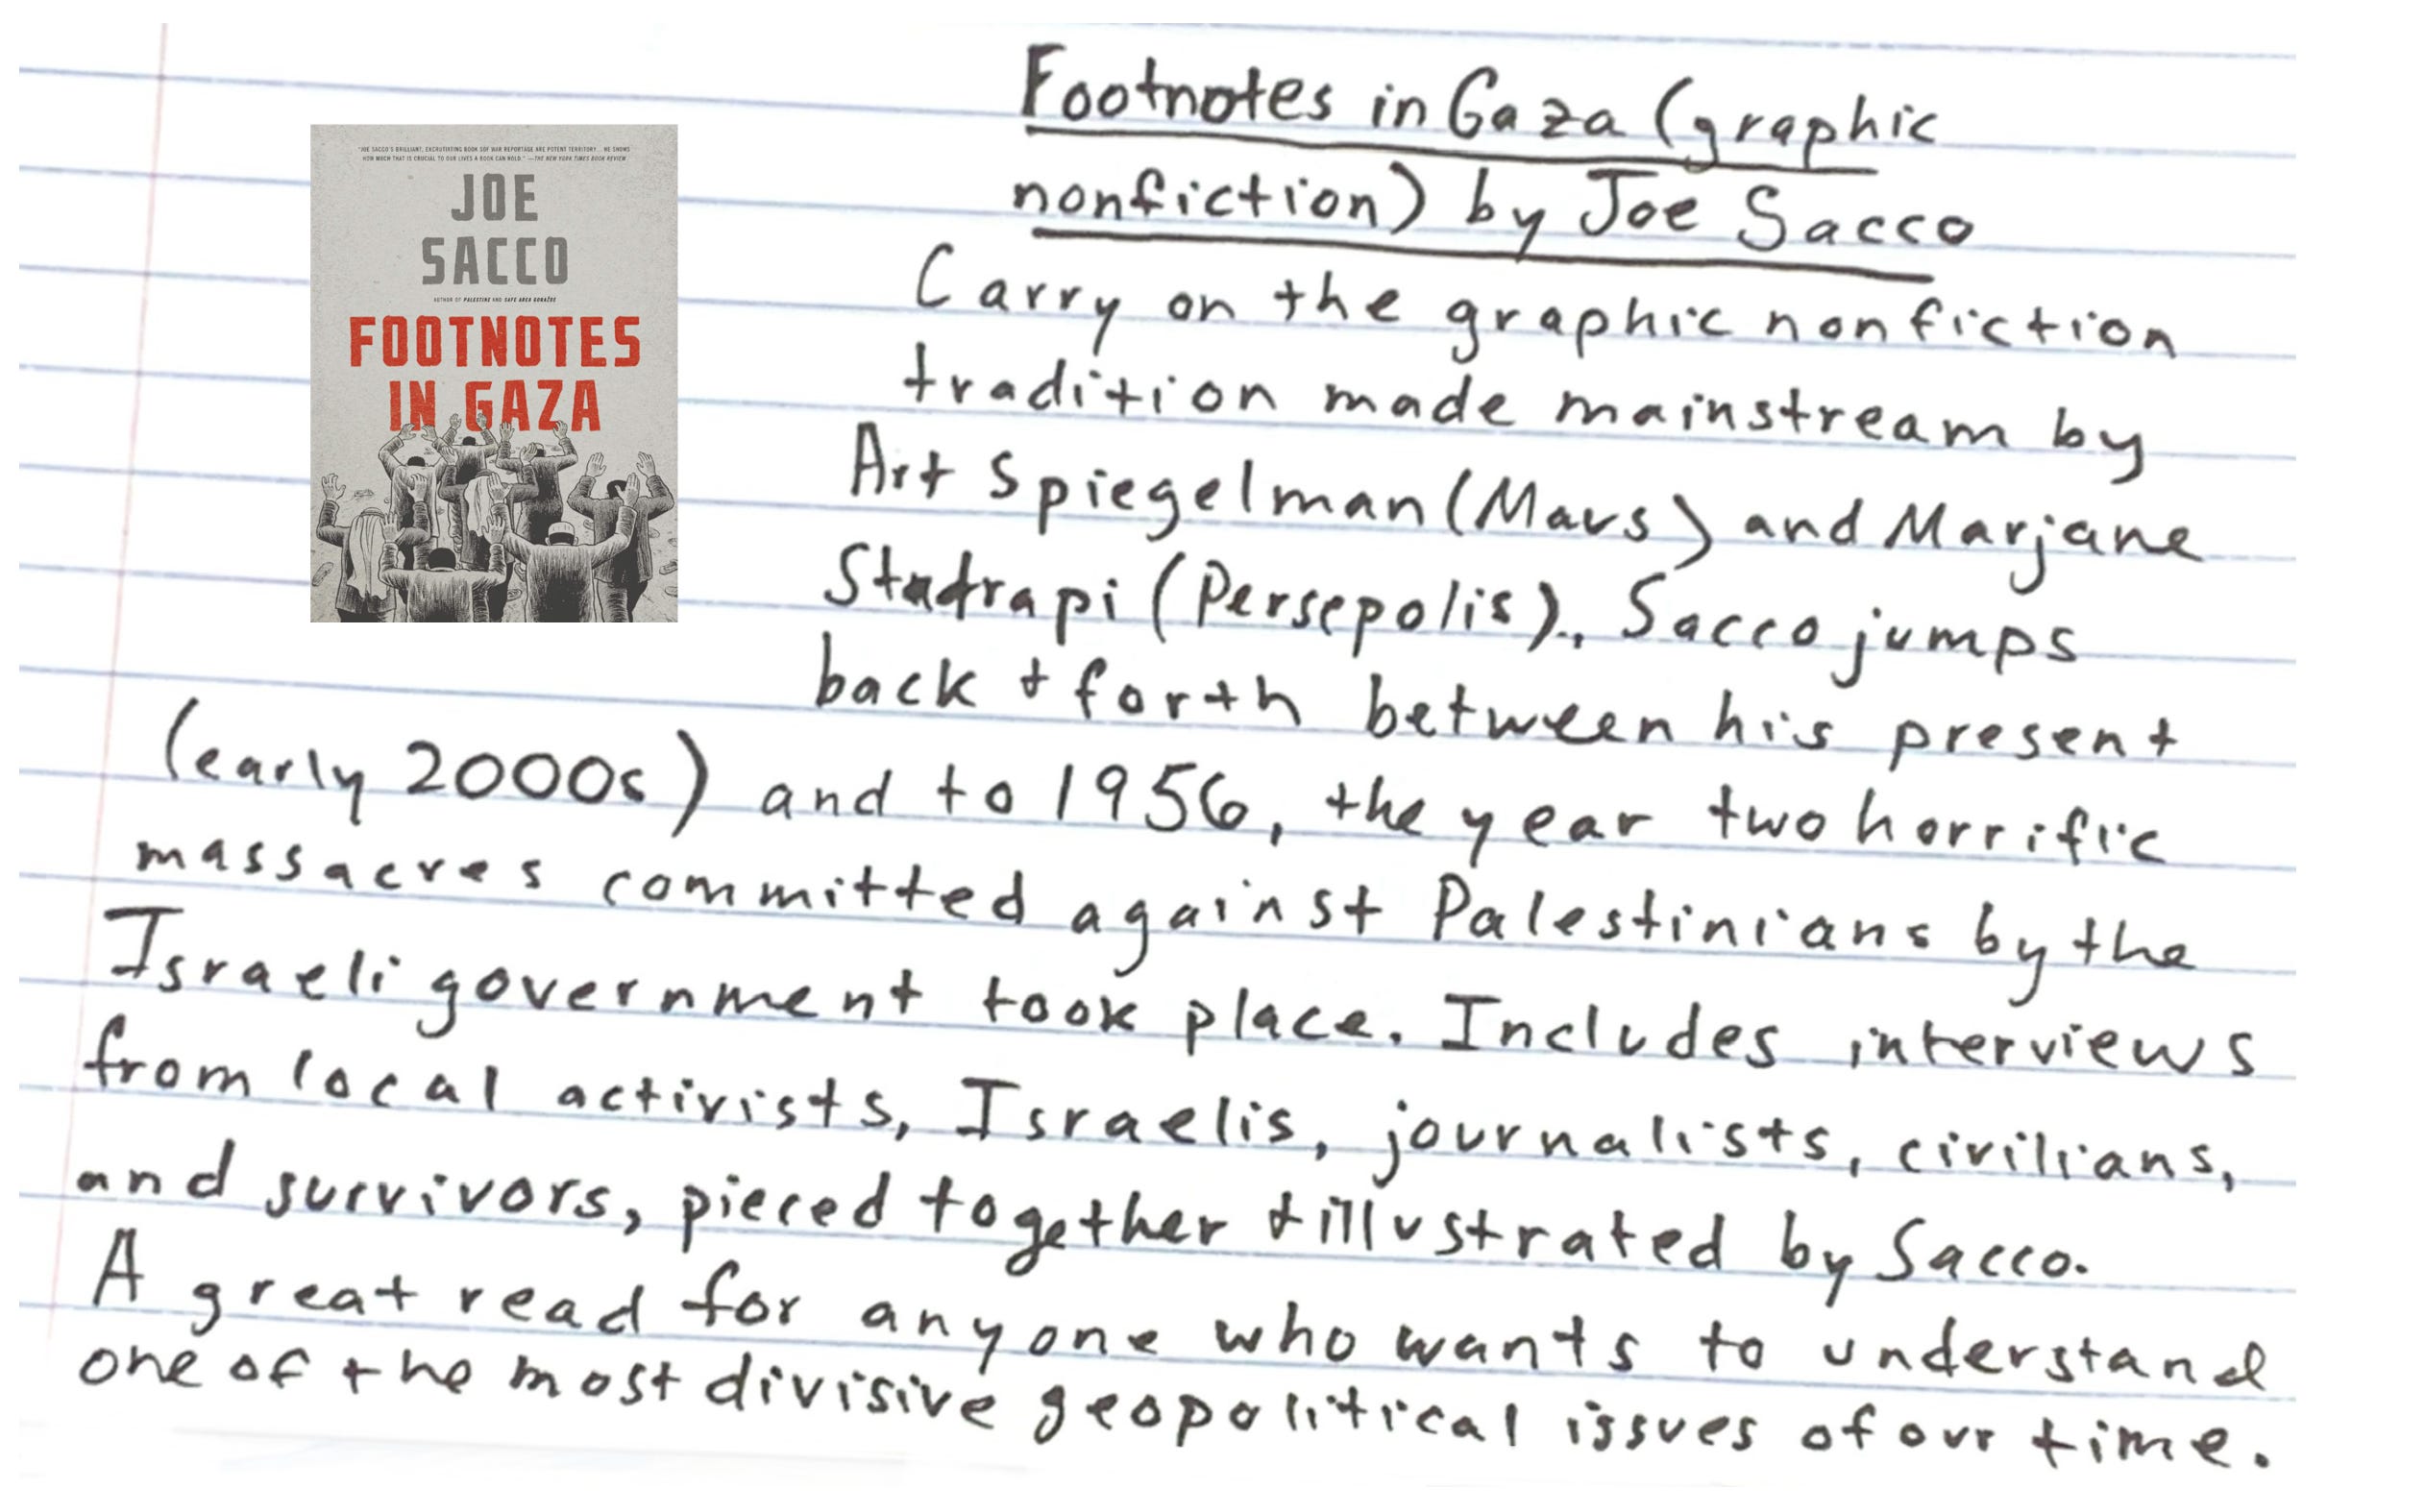 "JOE SACCO'S BRILLIANT, EXCRUTIATING BOOK SOF WAR REPORTAGE ARE POTENT TERRITORY... HE SHOWS
HOW MUCH THAT IS CRUCIAL TO OUR LIVES A BOOK CAN HOLD." —THE NEW YORK TIMES BOOK REVIEW
JOE
SACCO
AUTHOR OF PALESTINE AND SAFE AREA GORAŽDE
FOOTNOTES
IN GAZA
Footnotes in Gaza (graphic
nonfiction) by Joe Sacco
Carry on the graphic nonfiction
tradition made mainstream by
Art Spiegelman (Maus) and Marjane
Statrapi (Persepolis). Sacco jumps
back + forth between his present
(early 2000s) and to 1956, the year two horrific
massacres committed against Palestinians by the
Israeli government took place. Includes interviews
from local activists, Israelis, journalists, civilians,
and survivors, pieced together + illustrated by Sacco.
A great read for anyone who wants to understand
one of the most divisive geopolitical issues of our time.